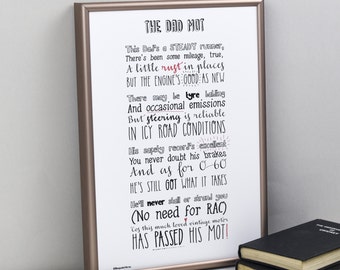 THE DAD MOT
This Dad's a STEADY runner,
There's been some mileage, true,
A little rust in places
BUT THE ENGINE'S GOOD AS NEW
There may be tyre balding
And occasional emissions
But steering is reliable
IN ICY ROAD CONDITIONS
His safety record's excellent
You never doubt his brakes
And as for 0-60
HE'S STILL GOT WHAT IT TAKES
He'll never stall or strand you
(No need for RAC)
Yes this much loved vintage motor
HAS PASSED HIS MOT!